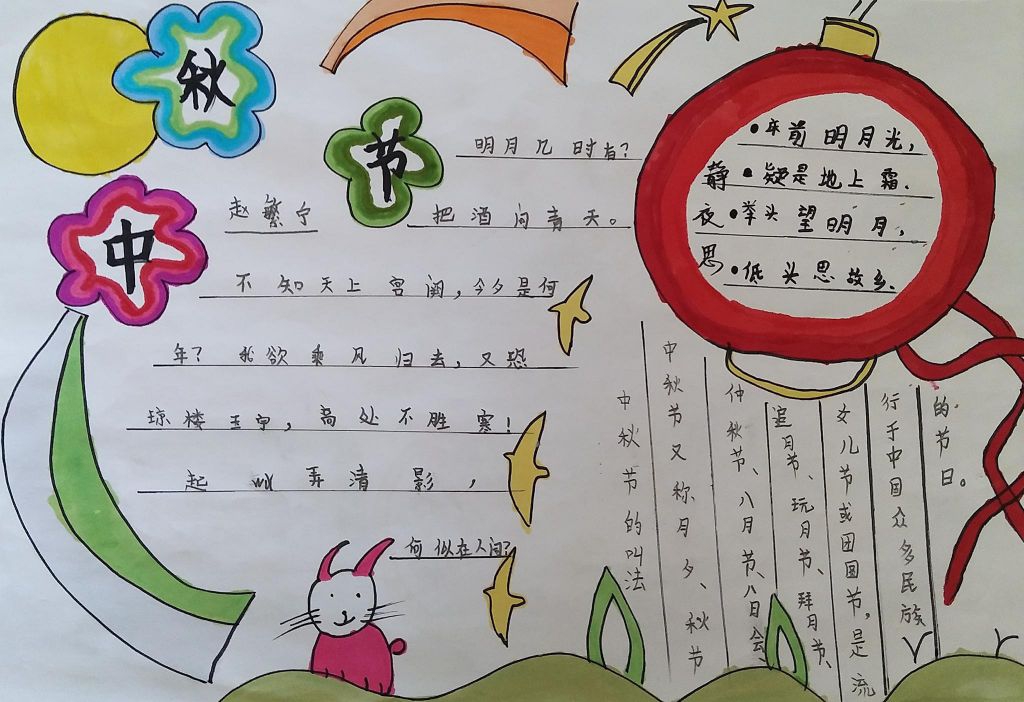 中
秋
节
赵繁宁
明月几时有?
把酒问青天。
不知天上宫阙,今夕是何
年?我欲乘风归去,又恐
琼楼玉宇,高处不胜寒!
起弄清影,
何似在人间?
静夜思
•床前明月光,
•疑是地上霜.
•举头望明月,
•低头思故乡.
中秋节的叫法
中秋节又称月夕、秋节
仲秋节、八月节、八日会、
追月节、玩月节、拜月节、
女儿节或团圆节,是流
行于中国众多民族
的节日。